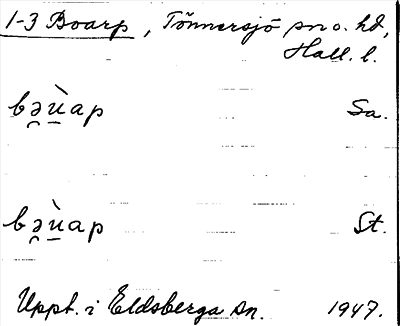 1-3 Boarp, Tönnersjö sn o. hd,
Hall. l.
bə̯ù̱ap Sa.
bə̯ù̱ap St.
Uppt. i Eldsberga sn. 1947.